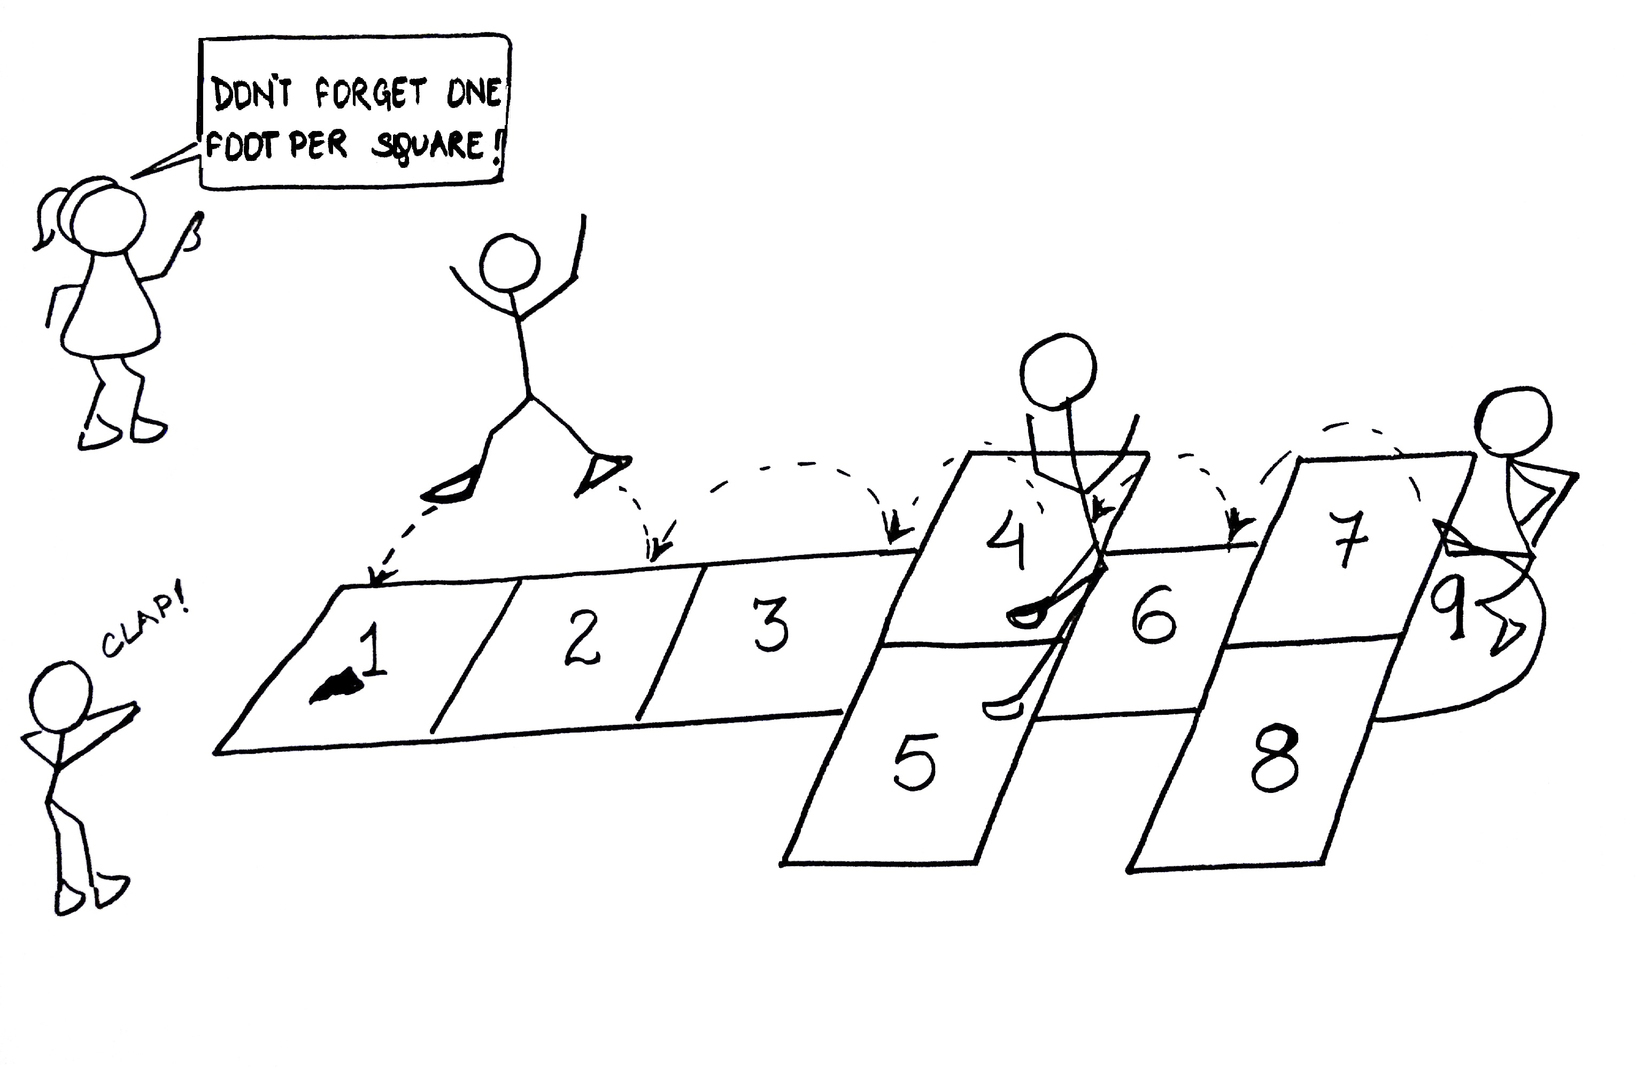 DON'T FORGET ONE
FOOT PER SQUARE!
CLAP!
1
2
3
4
5
6
7
8
9